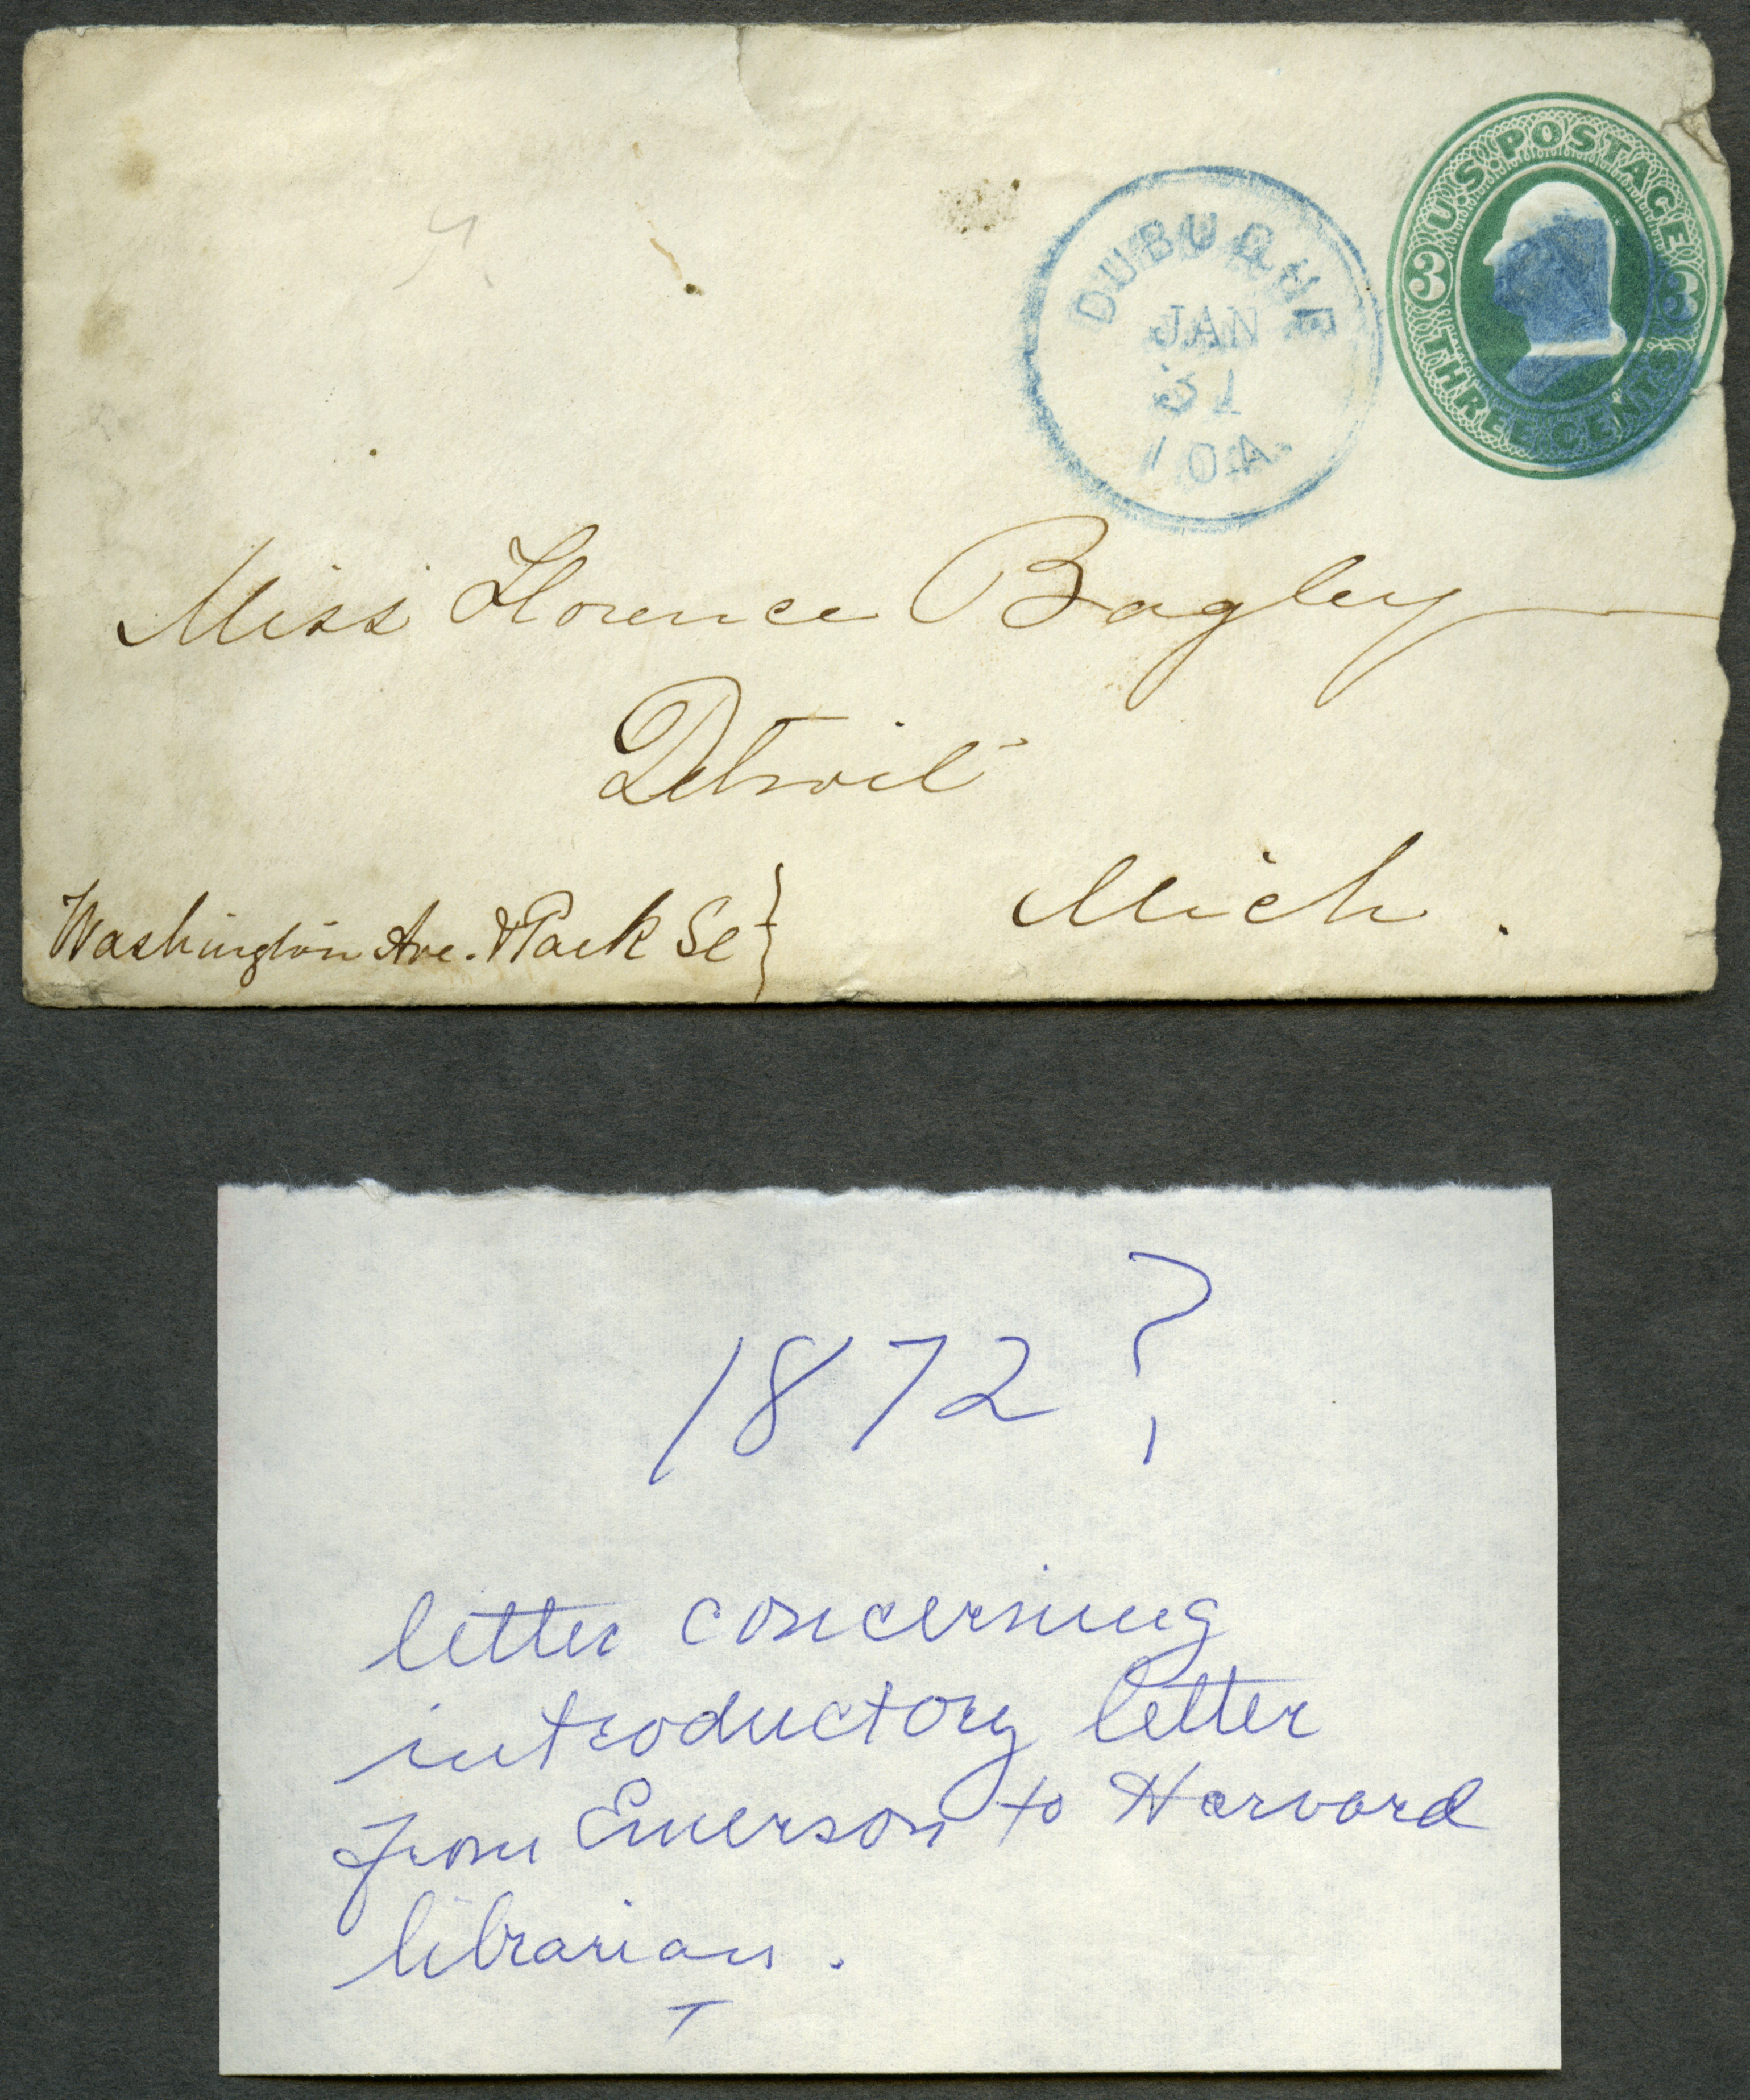 U.S. POSTAGE
3 3
THREE CENTS
DUBUQUE
JAN
31
IOA.
Miss Florence Bagley
Detroit
Mich.
Washington Ave. & Park St
1872?
letter concerning
introductory letter
from Emerson to Harvard
librarian.